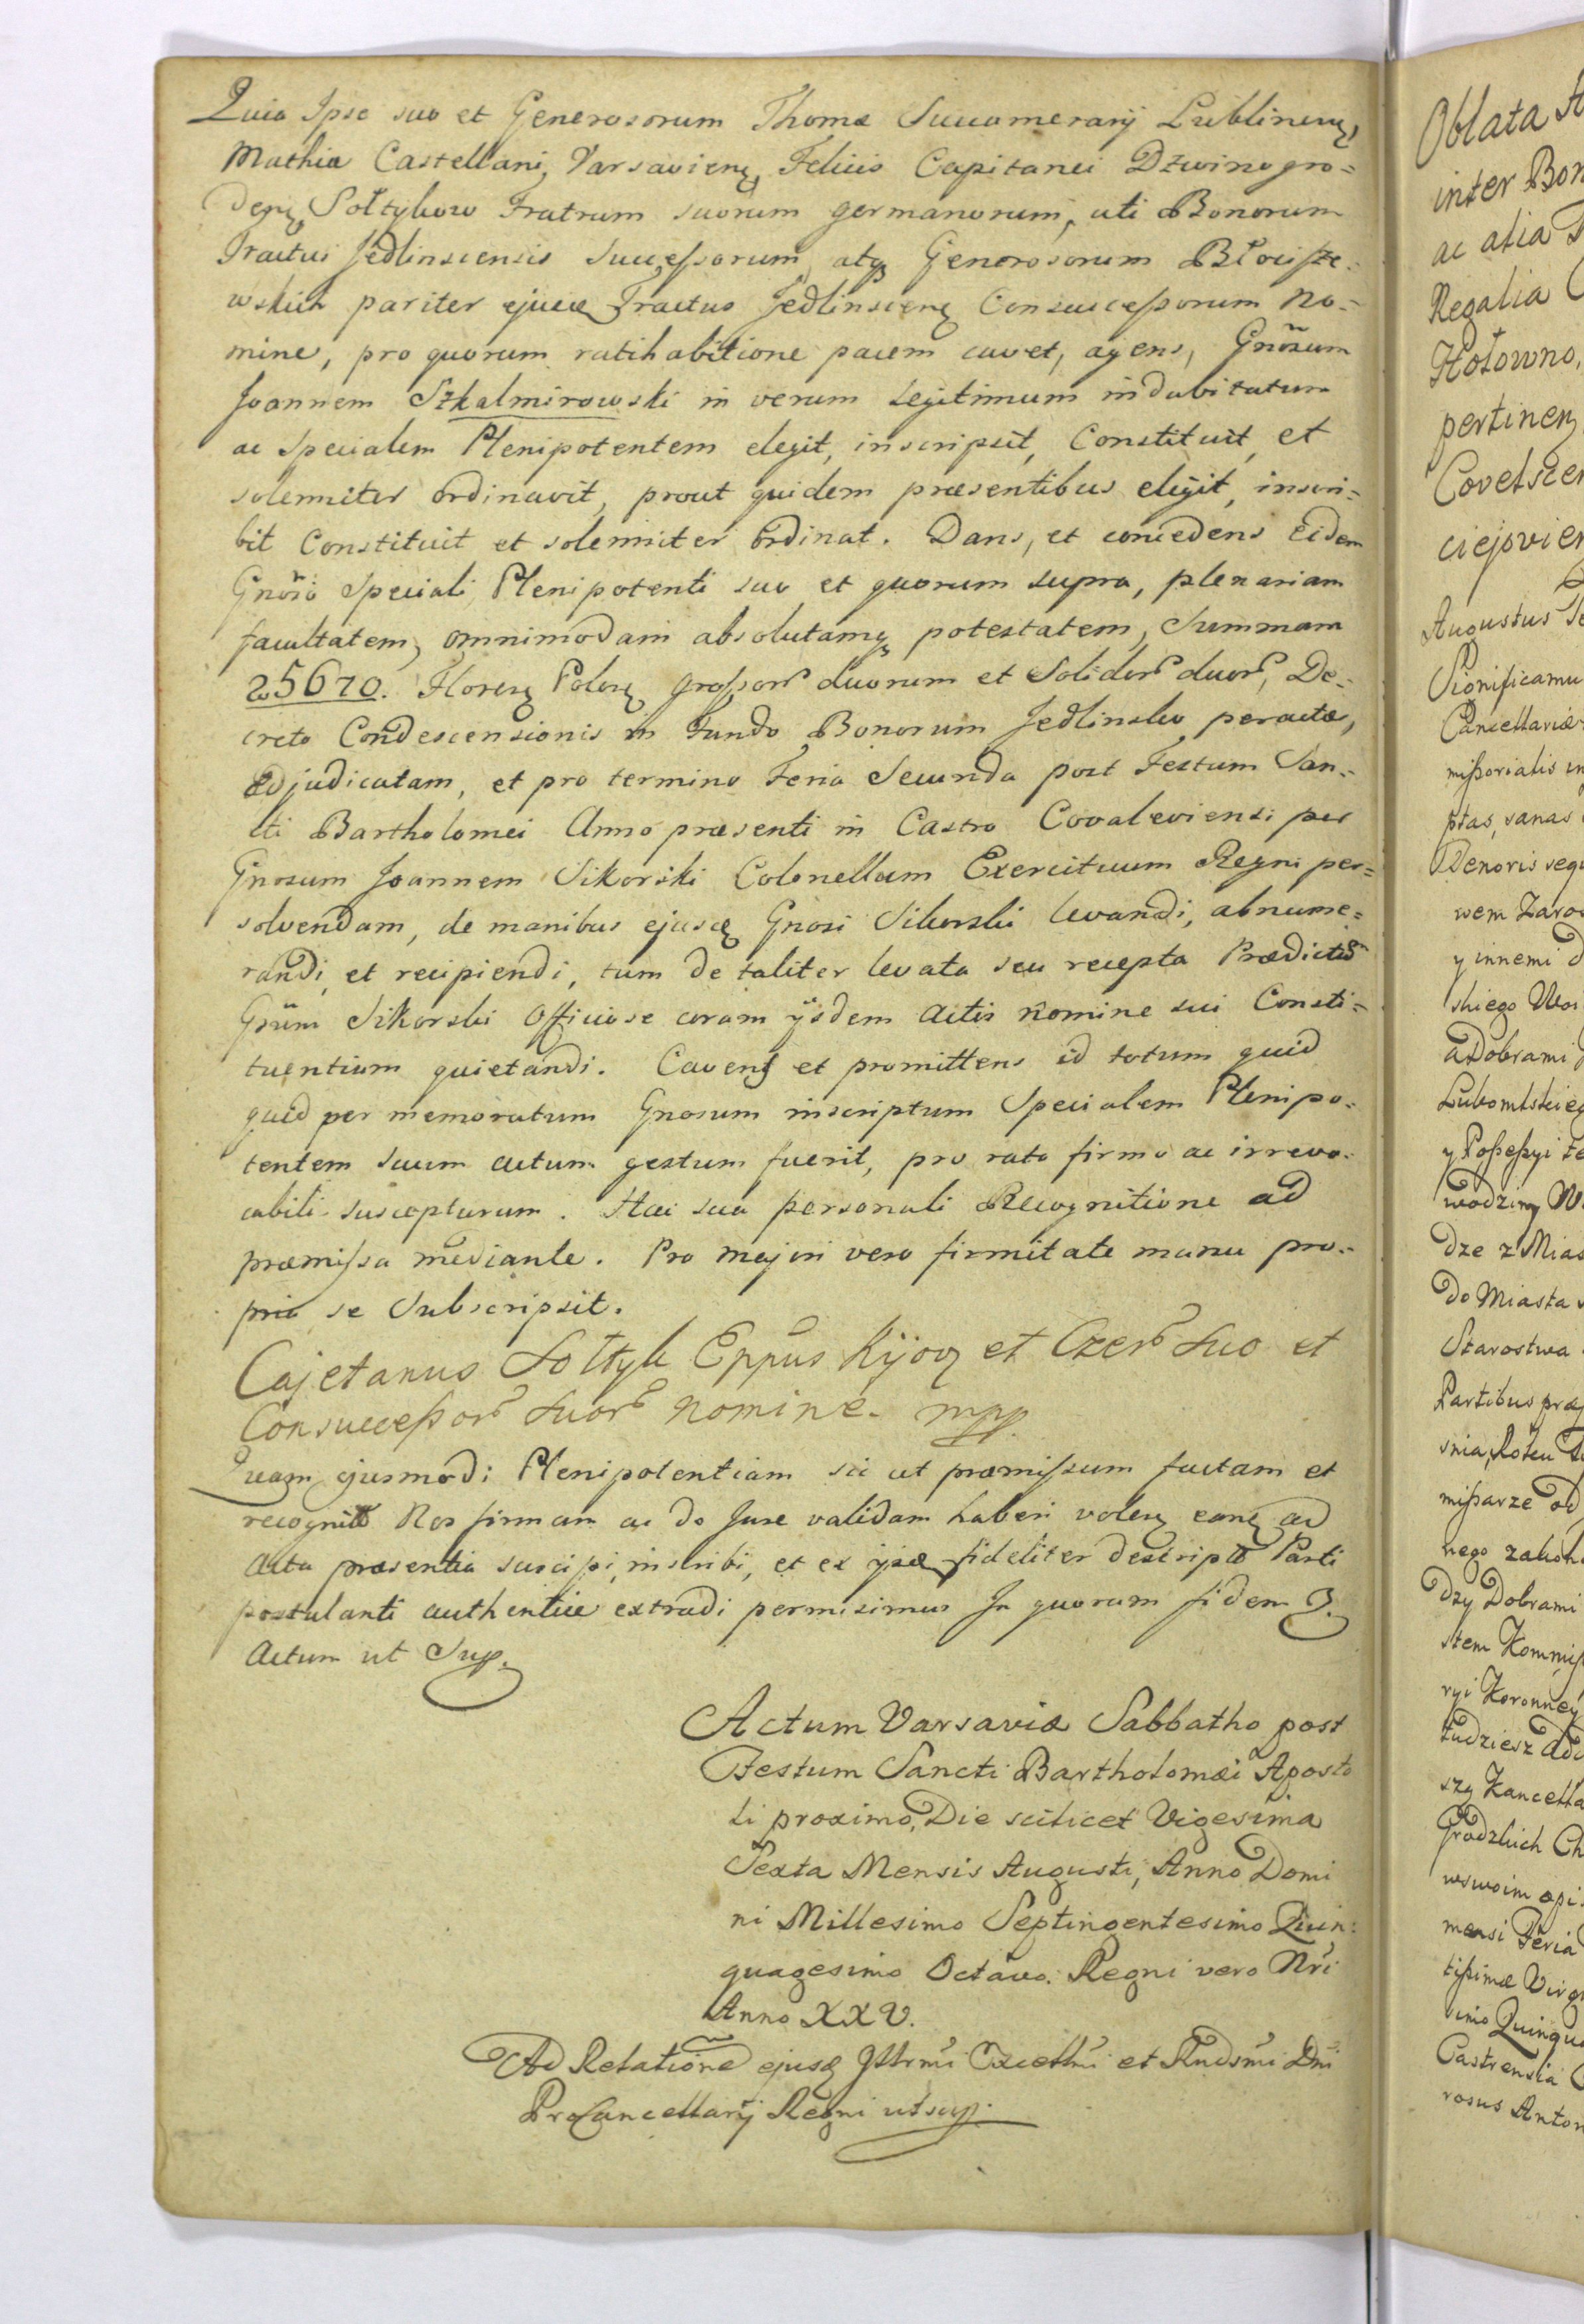 Quia Ipse suo et Generosorum Thomæ Succamerarij Lublinens,
Mathiæ Castellani, Varsaviens, Felicis Capitanei Dzwinogro=
dens, Sołtykow Fratrum suorum germanorum, uti Bonorum
Tractus Jedlinscensis Successorum, atq Generosorum Błocisze=
wskich pariter ejusd Tractus Jedlinscens Consuccessorum no=
mine, pro quorum ratihabitione pacem cavet, agens, Gnõrum
Joannem Szkalmirowski in verum legitimum indubitatum
ac Specialem Plenipotentem elegit, inscripsit, Constituit, et
solemniter ordinavit, prout quidem præsentibus eligit, inscri=
bit Constituit et solemniter ordinat. Dans, et concedens Eidem
Gnõso Speciali Plenipotenti suo et quorum supra, plenariam
facultatem, omnimodam absolutamq potestatem, Summam
25670. Floren Polon grossor duorum et Solidor duor, De=
creto Condescensionis in Fundo Bonorum Jedlinsko peractæ,
adjudicatam, et pro termino Feria Secunda post Festum San=
cti Bartholomei Anno præsenti in Castro Covaleviensi per
Gnosum Joannem Sikorski Colonellum Exercituum Regni per=
solvendam, de manibus ejusd Gnosi Sikorski levandi, abnume=
randi, et recipiendi, tum de taliter levata seu recepta Prædictum
Gnum Sikorski Officiose coram ijsdem Actis nomine sui Consti=
tuentium quietandi. Cavens et promittens id totum quid
quid per memoratum Gnosum inscriptum Specialem Plenipo=
tentem suum actum gestum fuerit, pro rato firmo ac irrevo=
cabili suscepturum. Hac sua personali Recognitione ad
præmissa mediante. Pro majori vero firmitate manu pro=
pria se Subscripsit.
Cajetanus Sołtyk Eppus Kijov et Czer Suo et
Consuccessor Suor nomine. mpp.
Quam ejusmodi Plenipotentiam sic ut præmissum factam et
recognit Nos firmam ac de Jure validam haberi volen eam ad
Acta præsentia suscipi, inscribi, et ex ijsd fideliter descripto Parti
postulanti authentice extradi permisimus In quorum fidem
Actum ut Sup.
Actum Varsaviæ Sabbatho post
Festum Sancti Bartholomæi Aposto
li proximo, Die scilicet Vigesima
Sexta Mensis Augusti, Anno Domi
ni Millesimo Septingentesimo Quin=
quagesimo Octavo. Regni vero Nri
Anno XXV.
Ad Relatione ejusd Illrmi Excellmi et Rndsmi Dni
ProCancellarij Regni ut sup.
Oblata
inter Bon
ac alia
Regalia
Hołowno,
pertinen
Covelscen
ciejovien
Augustus
Significamu
Cancellariæ
missorialis in
ptas, sanas
Tenoris sequ
wem Zaro
y innemi d
skiego Wo
a Dobrami
Lubomlskieg
y Possessyi
wodziny W
dze z Mias
do Miasta
Starostwa
Partibus præ
snia, Roku
missarze od
nego zakoń
dzy Dobrami
stem Kommiss
ryi Koronney
tudziesz
szy Kancella
Grodzkich Ch
wswoim opi
mensi Feria
tissimæ Virg
simo Quinqu
Castrensia
rosus Anton